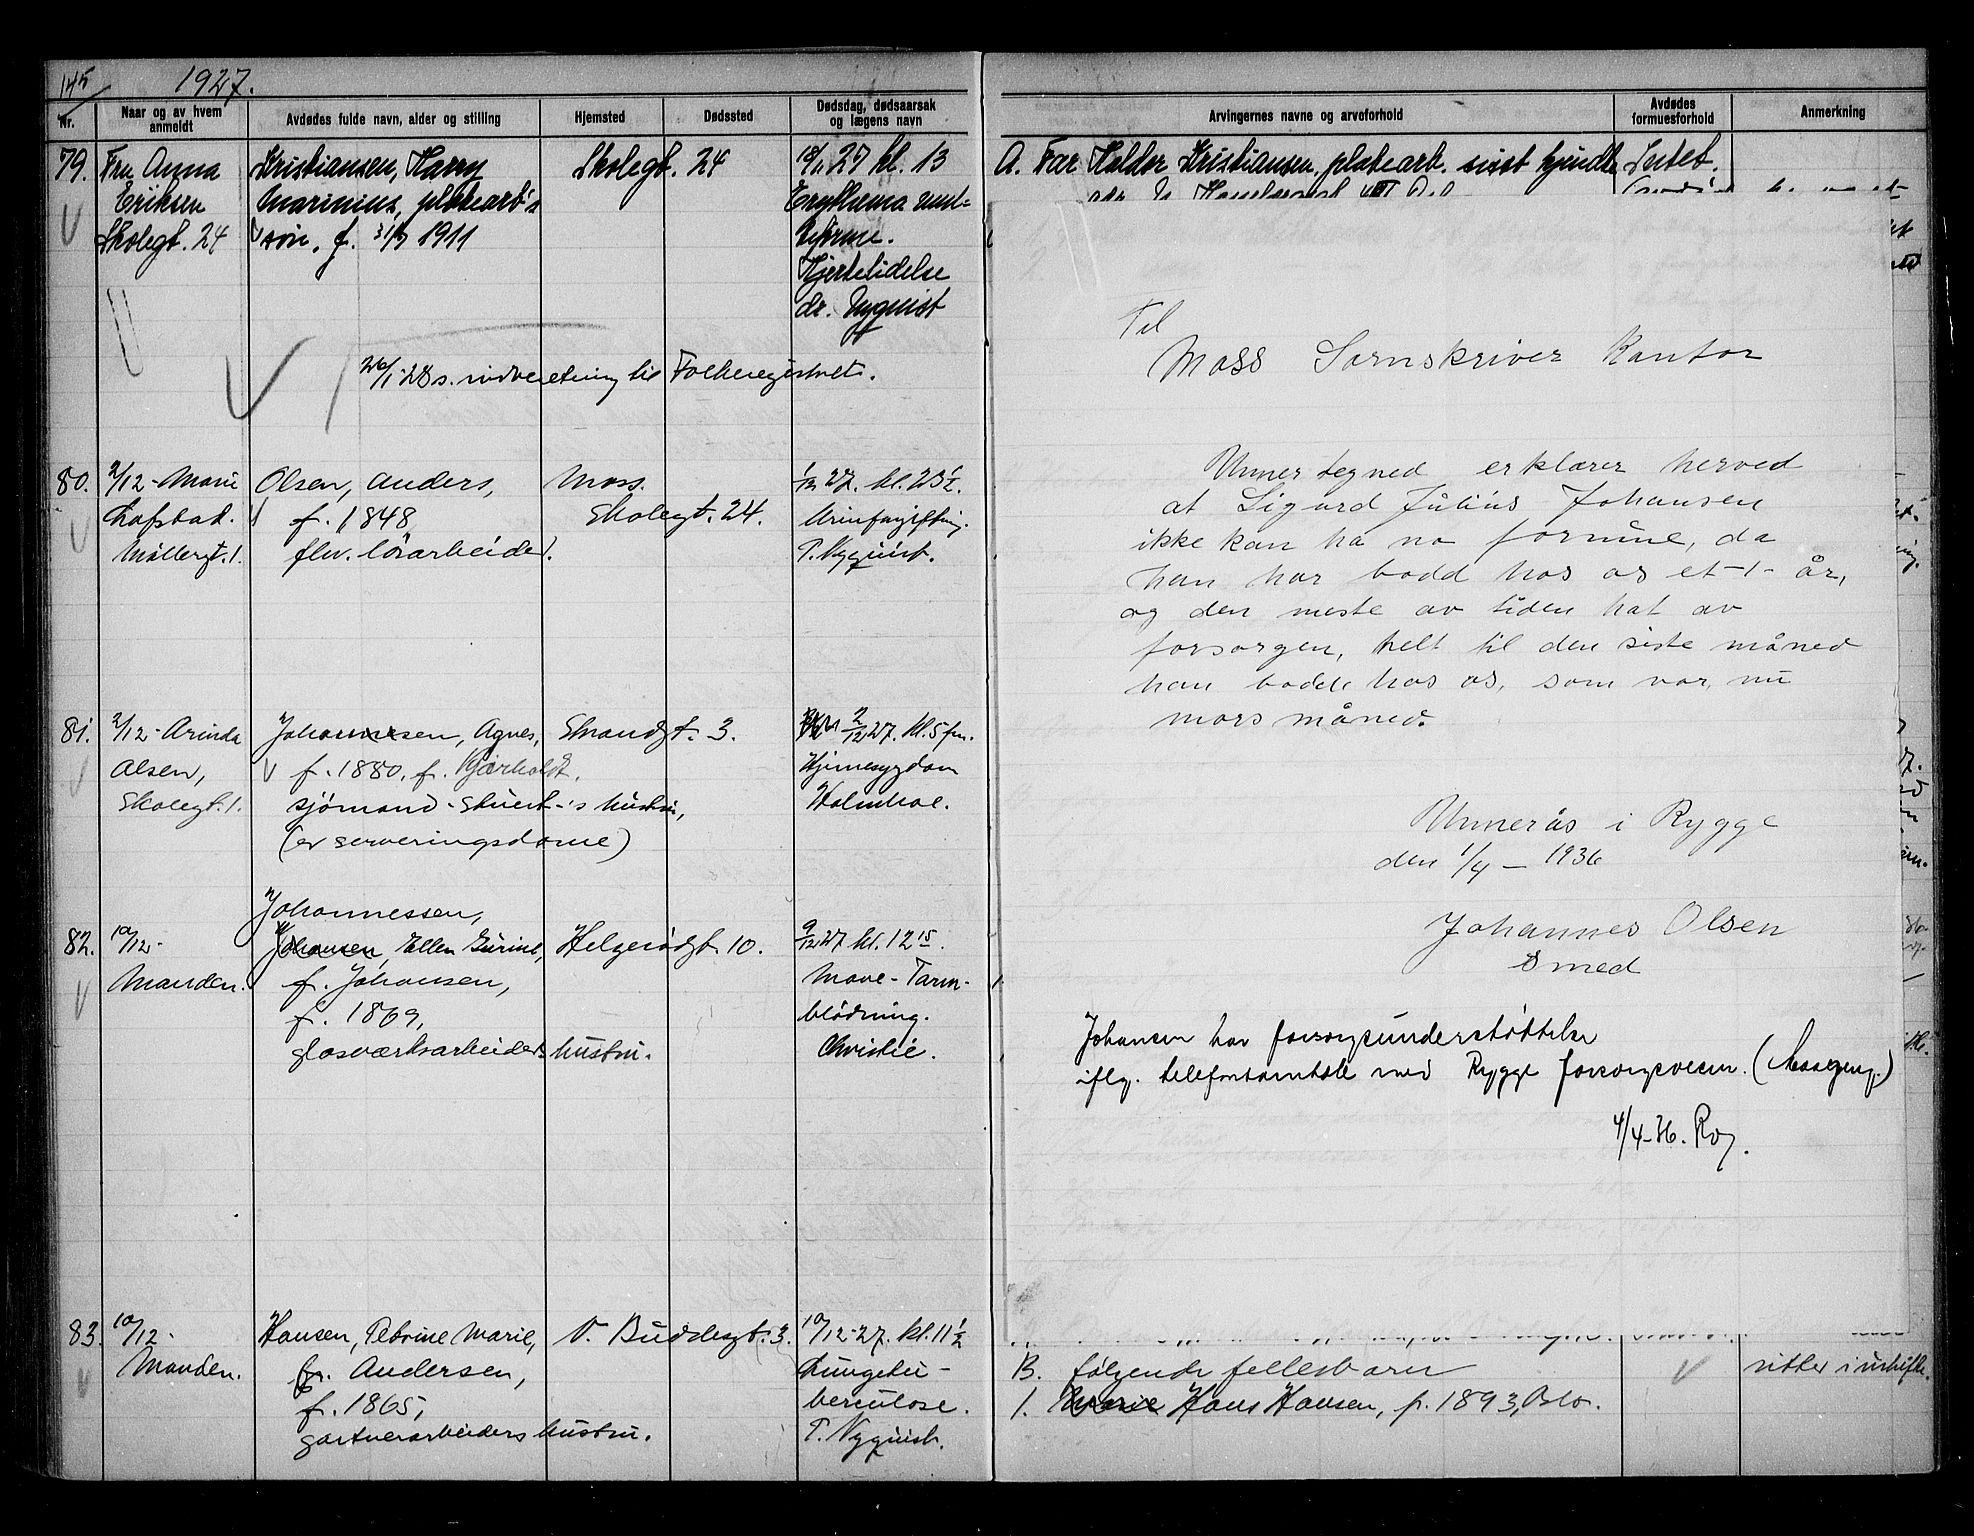 145
1927.
Nr.
Naar og av hvem anmeldt
Avdødes fulde navn, alder og stilling
Hjemsted
Dødssted
Dødsdag, dødsaarsak og lægens navn
Arvingernes navne og arveforhold
Avdødes formuesforhold
Anmerkning
79.
Fru Anna
Eriksen
Skolegt. 24
Kristiansen, Harry
Marinius, platearb's
søn, f. 1911
Skolegt. 24
27 kl. 13
Erythema mul-
tiforme.
Hjertelidelse
dr. Nyquist
A. Far Haldor Kristiansen, platearb. sidst kjendte
26/1-28 s. indberetning til Folkeregistret.
80.
2/12 - Marie
Lofstad.
Møllergt. 1.
Olsen, Anders,
f. 1848,
flv. lörarbeider.
Moss.
Skolegt. 24.
1/12 27. kl. 23½.
Urinforgiftning.
T. Nyquist.
81.
2/12 - Arinda
Olsen,
Skolegt. 1.
Johannesen, Agnes,
f. 1880, f. Kjærholdt.
sjømand - stuert-'s hustru,
(er serveringsdame)
Strandgt. 3.
2/12 27. kl. 5 fm.
Hjernesygdom
Holmboe.
82.
10/12-
Manden.
Johannessen,
Johansen, Ellen Gurine,
f. Johansen,
f. 1869,
glasværksarbeiders hustru.
Helgerödgt. 10.
9/12 27 kl. 12 15.
Mave-Tarm-
blödning.
Christie.
83.
10/12-
Manden.
Hansen, Petrine Marie,
f. Andersen,
f. 1865,
gartnerarbeiders hustru.
V. Buddesgt. 3.
10/12-27. kl. 11½
Lungetu-
berculose.
T. Nyquist.
Til
Moss Sornskriver Kontor
Unnertegned erklærer herved
at Sigurd Julius Johansen
ikke kan ha no formue, da
han har bodd hos os et -1- år,
og den meste av tiden hat av
forsorgen, helt til den siste måned
han bodde hos os, som var, nu
mars måned.
Unnerås i Rygge
den 1/4 - 1936
Johannes Olsen
Smed
Johansen har forsorgsunderstøttelse
iflg. telefonsamtale med Rygge forsorgsvesen.
4/4-36.
B. følgende fellesbarn
1. Hans Hansen, f. 1893, Oslo.
sitter i uskifte.